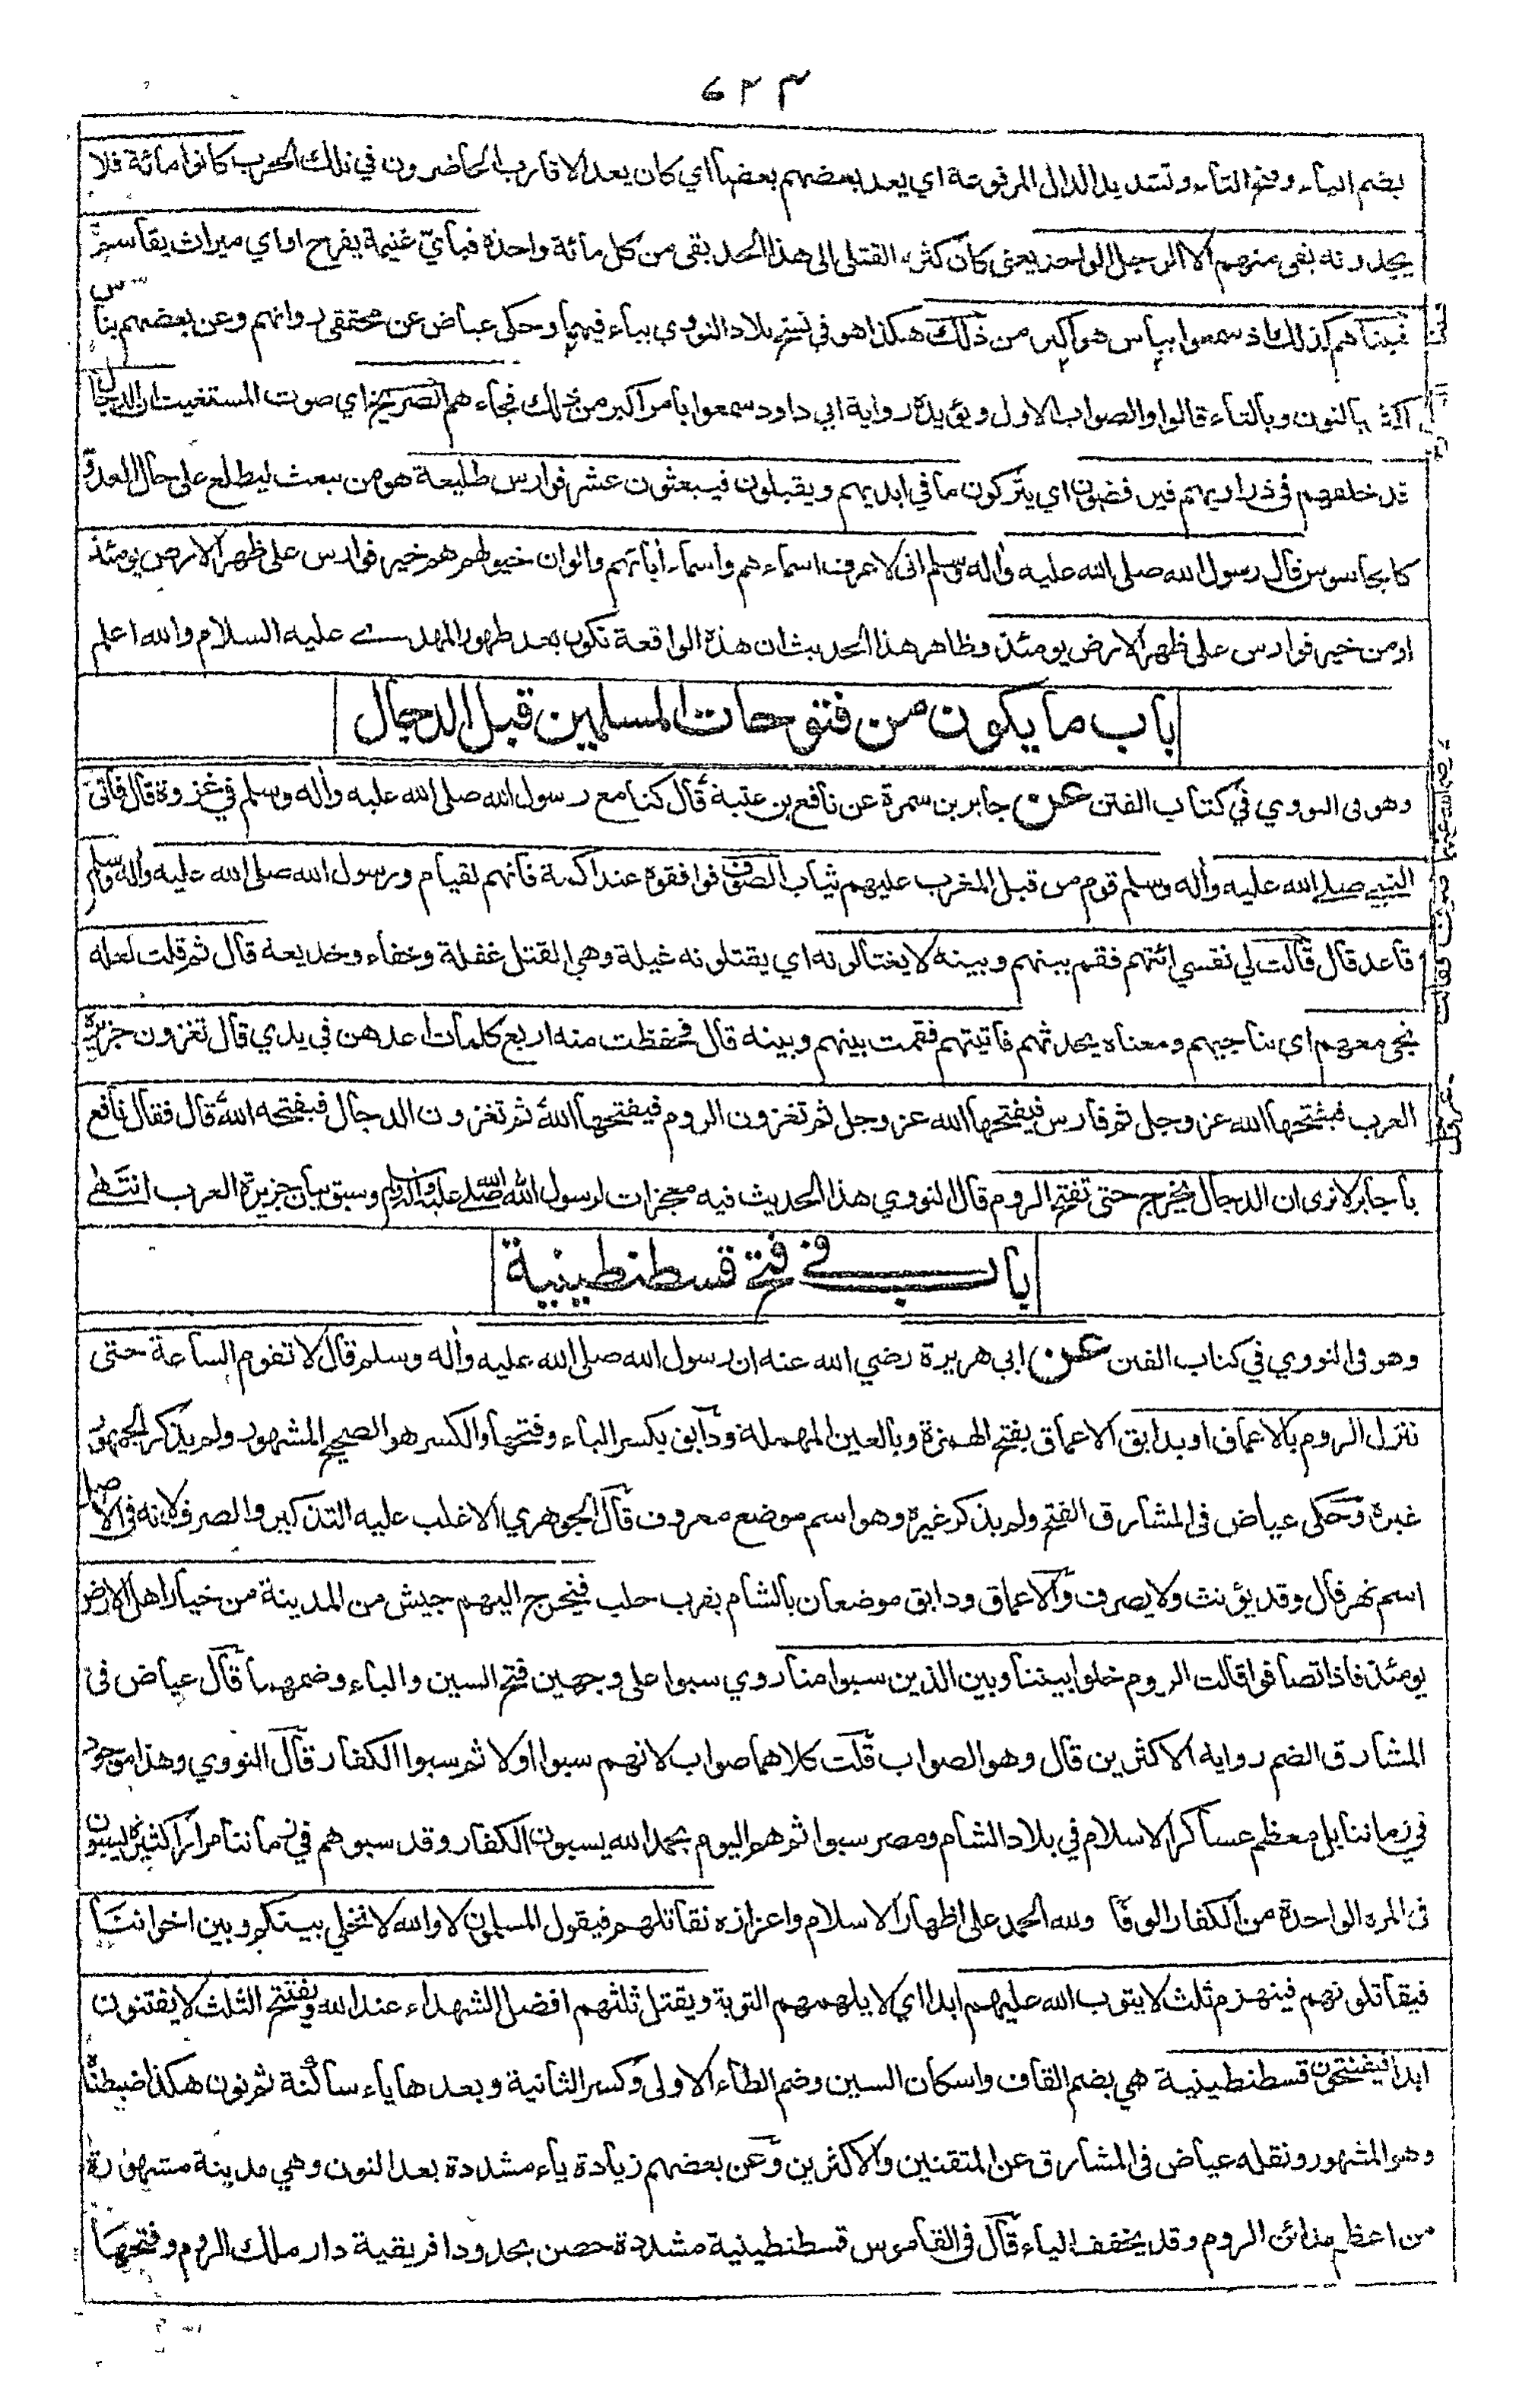 ٦٢٣
بضم الياء وفتح التاء وتشديد الدال المرفوعة اي يعد بعضهم بعضا اي كان يعد الاقارب الحاضرون في ذلك الحرب كانوا مائة فلا
يجدونه بقي منهم الا الرجل الواحد يعني كان كثرة القتلى الى هذا الحد بقي من كل مائة واحدة فبأيّ غنيمة يفرح او اي ميراث يقاسم
فبينا هم كذلك اذ سمعوا بباس هو اكبر من ذلك هكذا هو في نسخ بلاد النووي بباء فيهما وحكى عياض عن محققي رواتهم وعن بعضهم بناس
اكثر بالنون وبالثاء قالوا والصواب الاول ويؤيده رواية ابي داود سمعوا بامر اكبر من ذلك فجاءهم الصريخ اي صوت المستغيث ان الدجال
قد خلفهم في ذراريهم فيرفضون اي يتركون ما في ايديهم ويقبلون فيبعثون عشر فوارس طليعة هو من يبعث ليطلع على حال العدو
كالجاسوس قال رسول الله صلى الله عليه واٰله وسلم اني لاعرف اسماءهم واسماء اٰبائهم والوان خيولهم هم خير فوارس على ظهر الارض يومئذ
او من خير فوارس على ظهر الارض يومئذ وظاهر هذا الحديث ان هذه الواقعة تكون بعد ظهور المهدي عليه السلام والله اعلم
باب ما يكون من فتوحات المسلمين قبل الدجال
وهو في النووي في كتاب الفتن عن جابر بن سمرة عن نافع بن عتبة قال كنا مع رسول الله صلى الله عليه واٰله وسلم في غزوة قال فأتى
النبي صلى الله عليه واٰله وسلم قوم من قبل المغرب عليهم ثياب الصوف فوافقوه عند اكمة فانهم لقيام ورسول الله صلى الله عليه واٰله وسلم
قاعد قال قالت لي نفسي ائتهم فقم بينهم وبينه لا يغتالونه اي يقتلونه غيلة وهي القتل غفلة وخفاء وخديعة قال ثم قلت لعله
نجي معهم اي يناجيهم ومعناه يحدثهم فاتيتهم فقمت بينهم وبينه قال فحفظت منه اربع كلمات اعدهن في يدي قال تغزون جزيرة
العرب فيفتحها الله عز وجل ثم فارس فيفتحها الله عز وجل ثم تغزون الروم فيفتحها الله ثم تغزون الدجال فيفتحه الله قال فقال نافع
يا جابر لا نرى ان الدجال يخرج حتى تفتح الروم قال النووي هذا الحديث فيه معجزات لرسول الله صلى الله عليه واٰله وسلم وسبق بيان جزيرة العرب انتهى
باب في فتح قسطنطينية
وهو في النووي في كتاب الفتن عن ابي هريرة رضي الله عنه ان رسول الله صلى الله عليه واٰله وسلم قال لا تقوم الساعة حتى
تنزل الروم بالاعماق او بدابق الاعماق بفتح الهمزة وبالعين المهملة ودابق بكسر الباء وفتحها والكسر هو الصحيح المشهور ولم يذكر الجمهور
غيره وحكى عياض في المشارق الفتح ولم يذكر غيره وهو اسم موضع معروف قال الجوهري الاغلب عليه التذكير والصرف لانه في الاصل
اسم نهر قال وقد يؤنث ولا يصرف والاعماق ودابق موضعان بالشام بقرب حلب فيخرج اليهم جيش من المدينة من خيار اهل الارض
يومئذ فاذا تصافوا قالت الروم خلوا بيننا وبين الذين سبوا منا روي سبوا على وجهين فتح السين والباء وضمهما قال عياض في
المشارق الضم رواية الاكثرين قال وهو الصواب قلت كلاهما صواب لانهم سبوا اولا ثم سبوا الكفار قال النووي وهذا موجود
في زماننا بل معظم عساكر الاسلام في بلاد الشام ومصر سبوا ثم هم اليوم بحمد الله يسبون الكفار وقد سبوهم في زماننا مرارا كثيرة يسبون
في المرة الواحدة من الكفار الوفا ولله الحمد على اظهار الاسلام واعزازه نقاتلهم فيقول المسلمون لا والله لا نخلي بينكم وبين اخواننا
فيقاتلونهم فينهزم ثلث لا يتوب الله عليهم ابدا اي لا يلهمهم التوبة ويقتل ثلثهم افضل الشهداء عند الله ويفتتح الثلث لا يفتنون
ابدا فيفتتحون قسطنطينية هي بضم القاف واسكان السين وضم الطاء الاولى وكسر الثانية وبعدها ياء ساكنة ثم نون هكذا ضبطناه
وهو المشهور ونقله عياض في المشارق عن المتقنين والاكثرين وعن بعضهم زيادة ياء مشددة بعد النون وهي مدينة مشهورة
من اعظم مدائن الروم وقد يخفف الياء قال في القاموس قسطنطينية مشددة حصن بحدود افريقية دار ملك الروم وفتحها